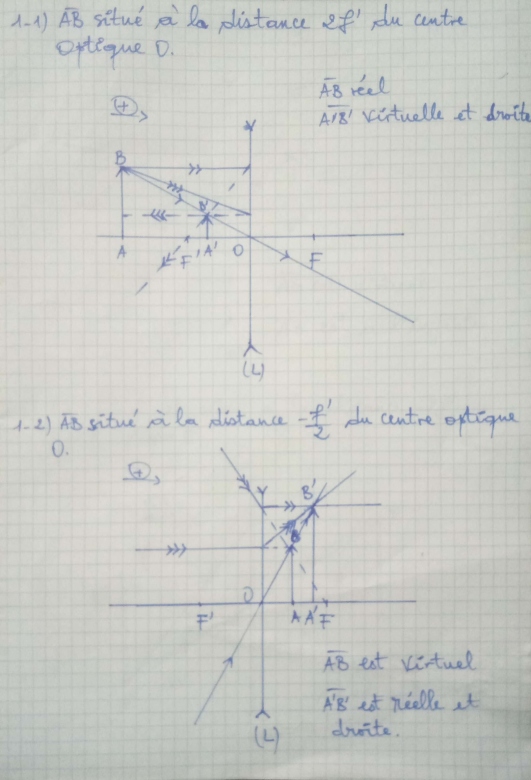 1-1) AB situé à la distance 2f' du centre
Optique O.
AB réel
A'B' virtuelle et droite
+
B
B'
A
F'
A'
O
F
(L)
1-2) AB situé à la distance -f'/2 du centre optique
O.
+
B'
B
O
F'
A
A'
F
AB est virtuel
A'B' est réelle et
droite.
(L)